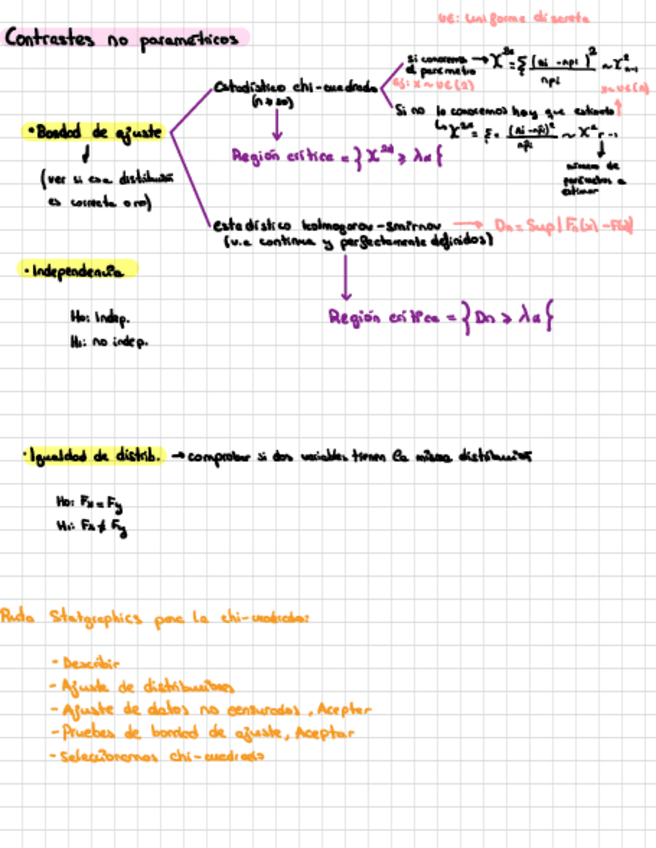 UE: Uniforme discreta
Contrastes no paramétricos
Si conocemos el parámetro → X²ᵈ = Σ (ni - npi)² / npi ~ X²n-1
Estadístico chi-cuadrado
(n > 30)
Si no lo conocemos hay que
• Bondad de ajuste
↓
Región crítica = } X²ᵈ ≥ λα {
(ver si esa distribución
es correcta o no)
número de
parámetros a
estimar
Estadístico Kolmogorov-Smirnov → Dn = Sup | Fn(x) - F(x) |
(v.a continua y perfectamente definidos)
• Independencia
Ho: Indep.
H1: no indep.
Región crítica = } Dn ≥ λα {
• Igualdad de distrib. → comprobar si dos variables tienen la misma distribución
Ho: Fx = Fy
H1: Fx ≠ Fy
Ruta Statgraphics para la chi-cuadrado:
- Describir
- Ajuste de distribuciones
- Ajuste de datos no censurados, Aceptar
- Pruebas de bondad de ajuste, Aceptar
- Seleccionamos chi-cuadrado